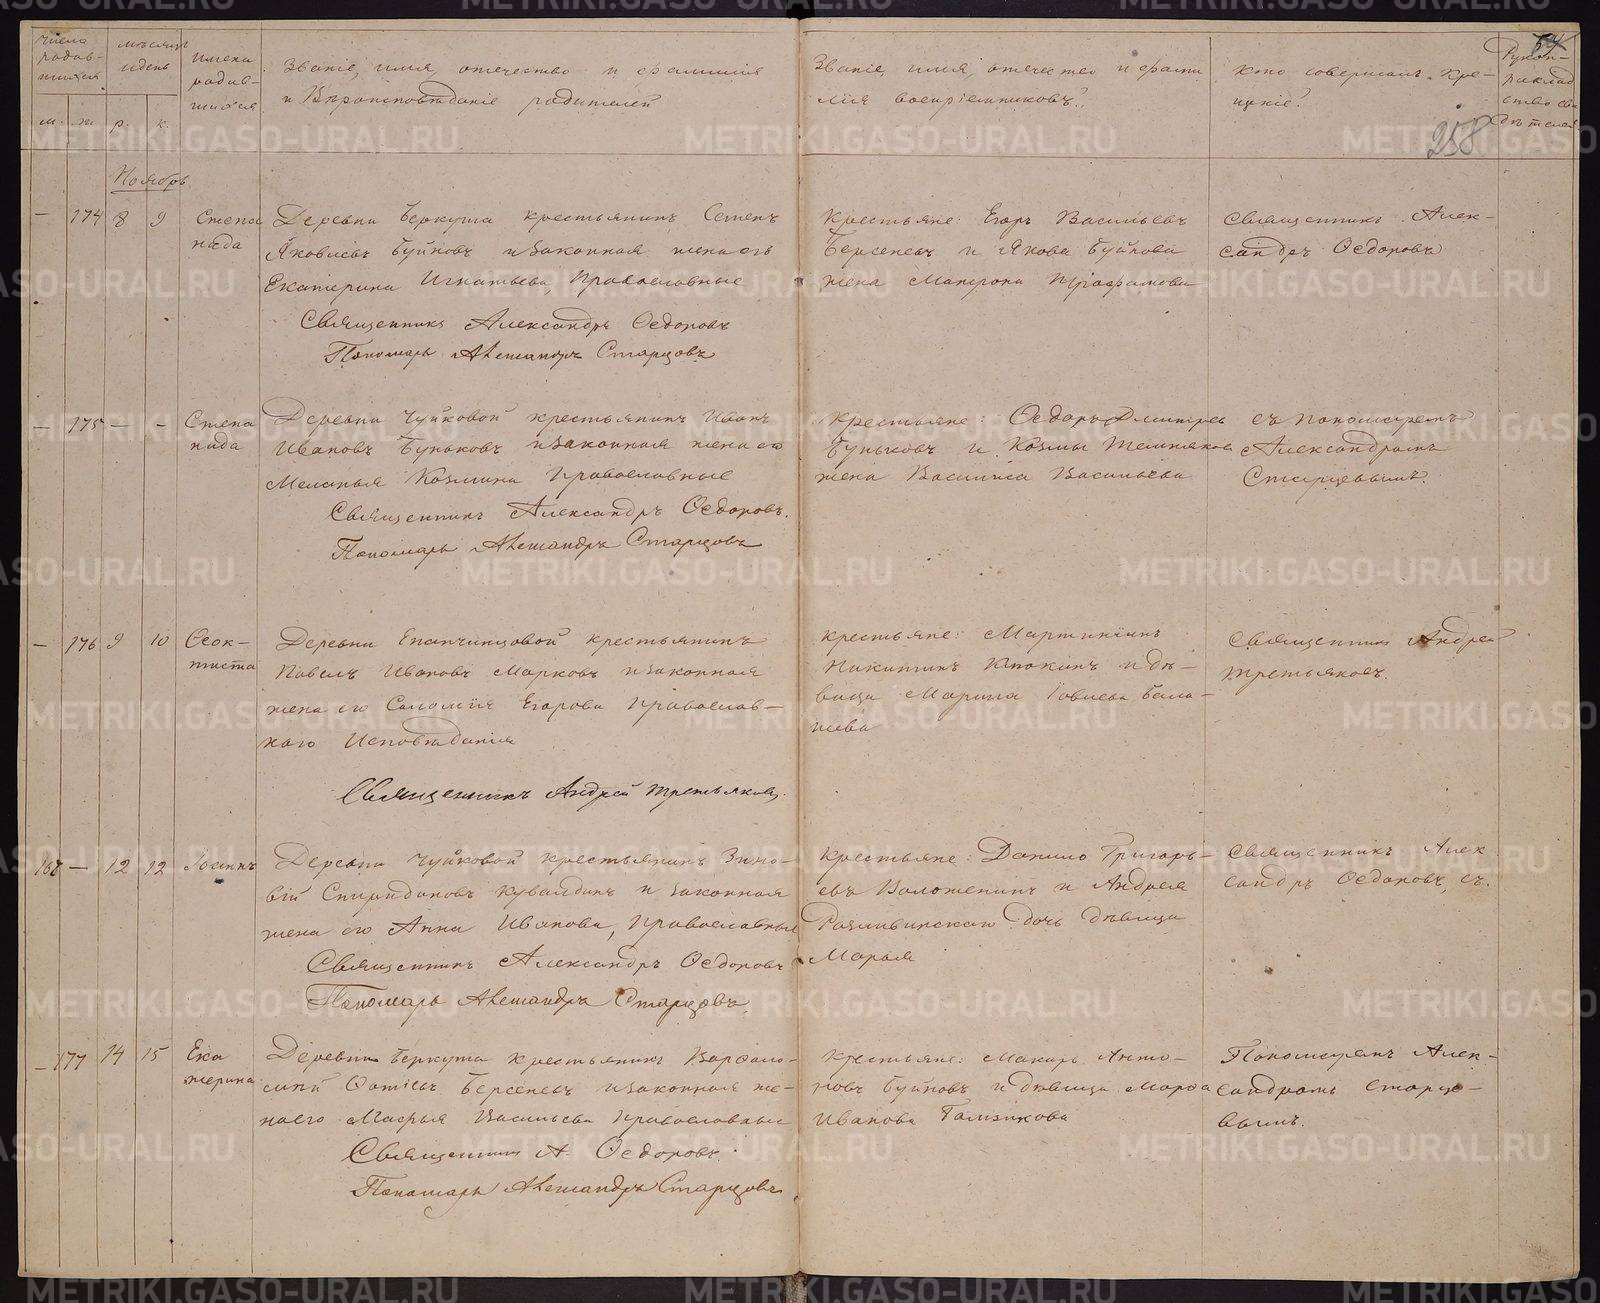 Числа родив-шихся
м. ж.
мѣсяцъ и день
р. к.
имена родив-шихся
Званіе, имя, отчество и фамилія
и Вѣроисповѣданіе родителей
Званіе, имя, отчество и фами-
лія воспріемниковъ?
Кто совершалъ кре-
щеніе?
Рукоп-
риклад
ство сви
дѣтелей
258
Ноябрь
— 174 8 9
Степа
нида
Деревни Беркута крестьянинъ Семенъ
Яковлевъ Буйновъ и законная жена его
Екатерина Игнатьева, Православные
Священникъ Александръ Ѳедоровъ
Пономарь Александръ Старцовъ
Крестьяне: Егоръ Васильевъ
Берсеневъ и Якова Буйнова
жена Матрона
Священникъ Алек-
сандръ Ѳедоровъ
— 175 — —
Степа
нида
Деревни Чуйковой крестьянинъ Иванъ
Ивановъ Буньковъ и законная жена его
Меланья Козмина Православные
Священникъ Александръ Ѳедоровъ.
Пономарь Александръ Старцовъ
Крестьяне: Ѳедоръ Дмитріев
Буньковъ и Козмы
жена Василиса Васильева
съ пономаремъ
Александромъ
Старцевымъ.
— 176 9 10
Ѳеок-
тиста
Деревни Епанчинцовой крестьянинъ
Павелъ Ивановъ Марковъ и законная
жена его Саломія Егорова Православ-
наго Исповѣданія
Священникъ Андрей Третьяковъ.
крестьяне: Мартиніанъ
Никитинъ Клюкинъ и дѣ-
вица Марина Іовлева Бала-
шева
Священникъ Андрей
Третьяковъ.
168 — 12 12
Іоаннъ
Деревни Чуйковой крестьянинъ Зино-
вій Спиридоновъ Кувалдинъ и законная
жена его Анна Иванова, Православные
Священникъ Александръ Ѳедоровъ
Пономарь Александръ Старцовъ.
Крестьяне: Данило Григорь-
евъ Воложенинъ и Андрея
дочь дѣвица
Марья
Священникъ Алек
сандръ Ѳедоровъ, съ.
— 177 14 15
Ека
терина
Деревни Беркута крестьянинъ Варѳоло-
мей Ѳотіевъ Берсеневъ и законная же-
на его Марья Васильева Православные
Священникъ А. Ѳедоровъ.
Пономарь Александръ Старцовъ
Крестьяне: Макаръ Анто-
новъ Буйновъ и дѣвица Марѳа
Иванова Галзикова
Пономаремъ Алек-
сандромъ Старце-
вымъ.
METRIKI.GASO-URAL.RU